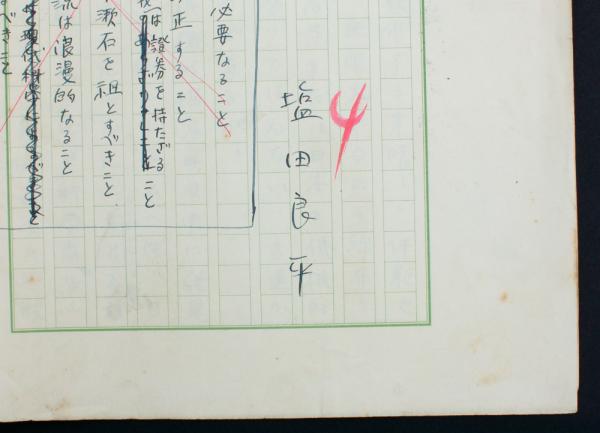 4
塩田良平
必要なること
正すること
は證券を持たざる
こと
漱石を祖とすべきこと
流は浪漫的なること
べきこと